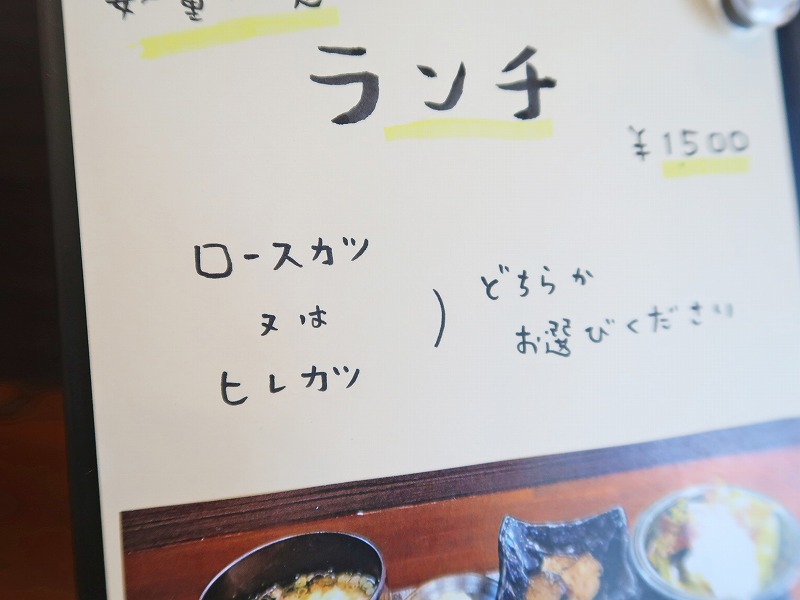 ランチ
¥1500
ロースカツ
又は
ヒレカツ
) どちらか
お選びください